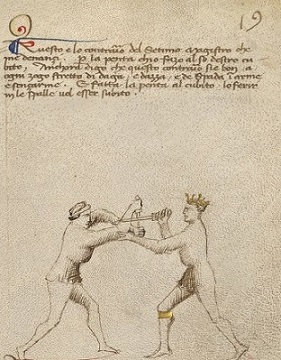 19
Questo e lo contrario del Setimo magistro che
me denanzi. P la penta chio fazo al so destro cu
bito, Anchora digo che questo contrario sie bon a
ogni zogo stretto di daga, e dazza, e de spada in arme
e senzarme. E fatta la penta al cubito lo ferir
in le spalle vol esser subito.